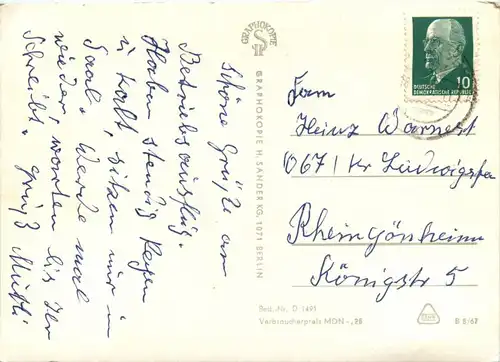 Schöne Grüße am
Betriebsausflug.
Haben ständig Regen
u. kalt, sitzen nur im
Saal. Werde mal
wieder, warten bis Ihr
schreibt. Gruß Mutti
GRAPHOKOPIE
GRAPHOKOPIE H. SANDER KG, 1071 BERLIN
DEUTSCHE
DEMOKRATISCHE REPUBLIK
10
Fam
Heinz Warnest
0671 Kr Ludwigshfn
Rheingönheim
Königstr 5
Best.-Nr. D 1491
Verbraucherpreis MDN -,28
B 8/67